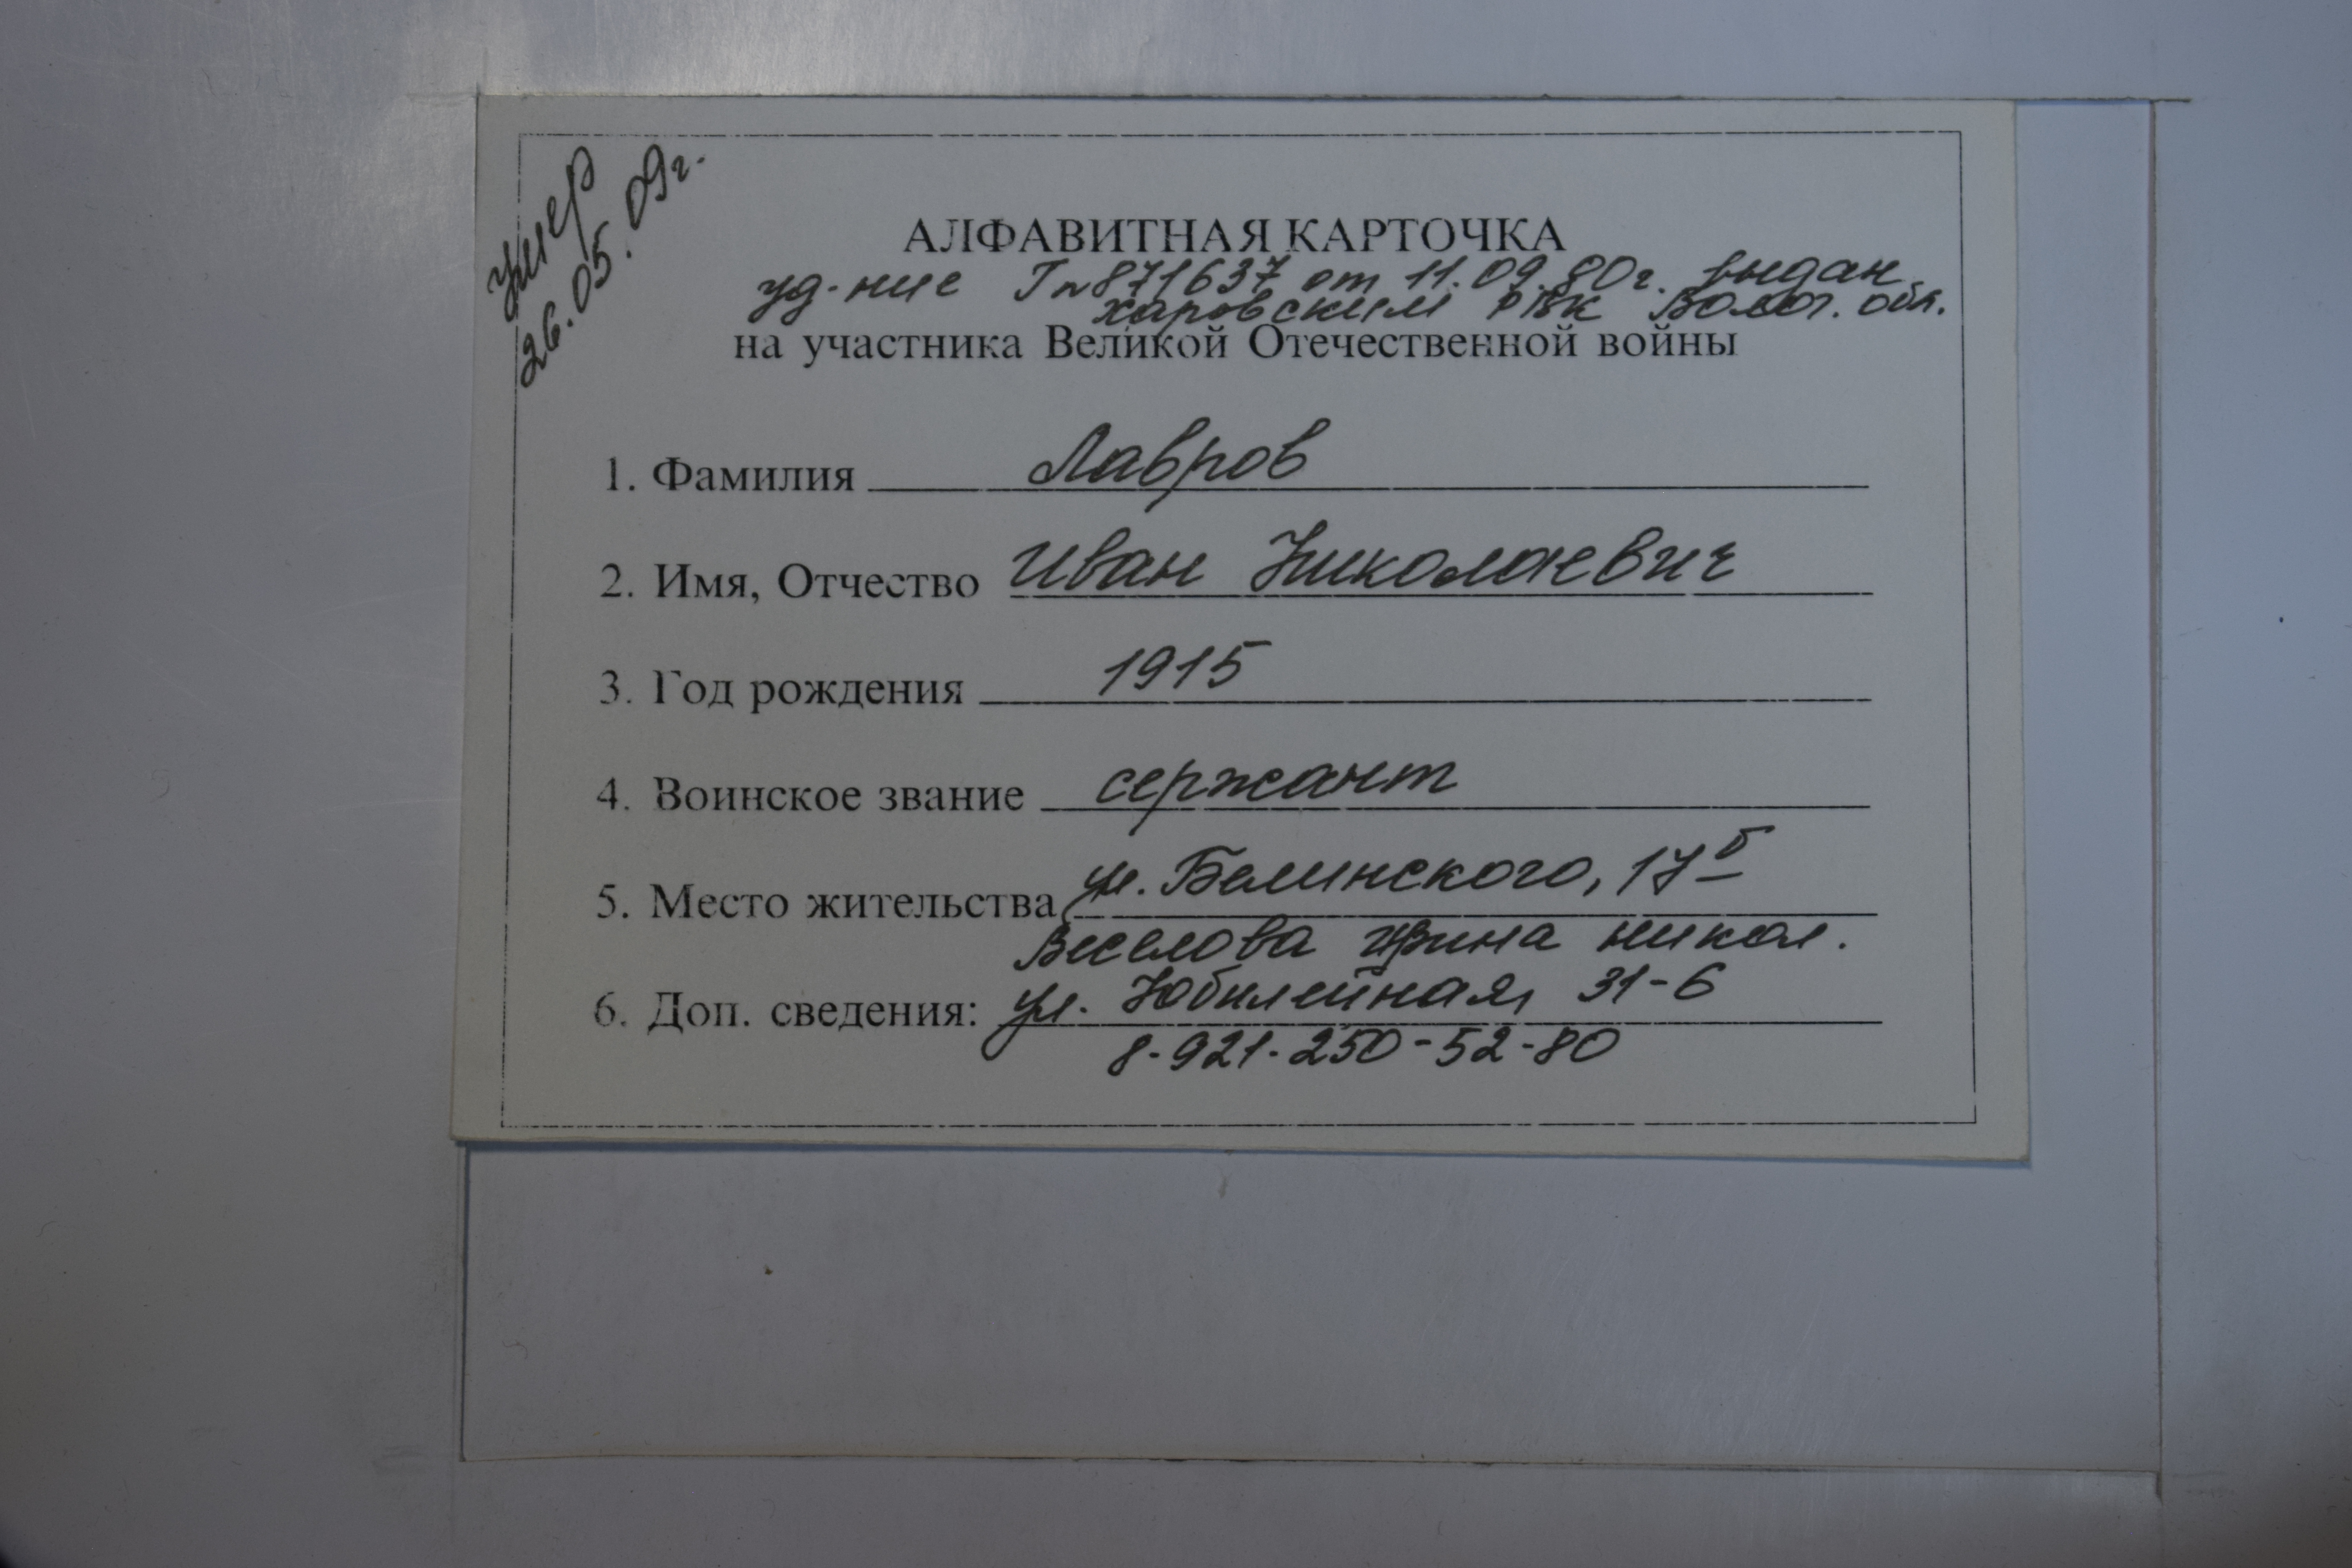 умер
26.05.09г.
АЛФАВИТНАЯ КАРТОЧКА
уд-ние Гп871637 от 11.09.80г. выдан
харовским РВК Волог. обл.
на участника Великой Отечественной войны
1. Фамилия Лавров
2. Имя, Отчество Иван Николаевич
3. Год рождения 1915
4. Воинское звание сержант
5. Место жительства ул. Белинского, 17б
Веселова Ирина Никол.
6. Доп. сведения: ул. Юбилейная, 31-6
8-921-250-52-80